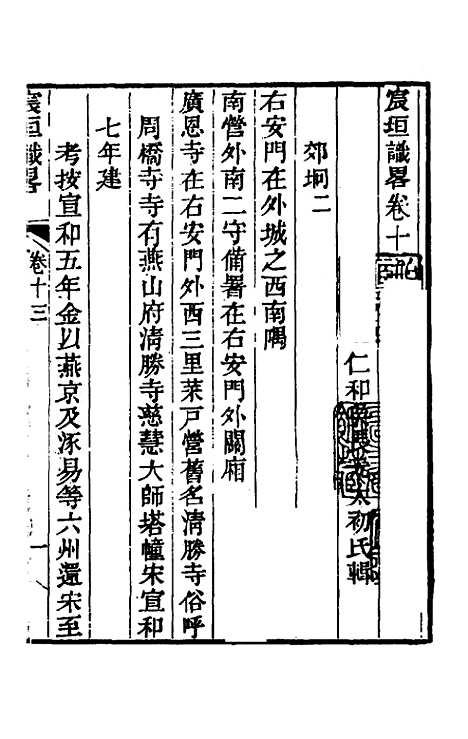 宸垣識畧卷十
仁和吳長元太初氏輯
郊坰二
右安門在外城之西南隅
南營外南二守備署在右安門外關廂
廣恩寺在右安門外西三里萊戸營舊名清勝寺俗呼
周橋寺寺有燕山府清勝寺慈慧大師塔幢宋宣和
七年建
考按宣和五年金以燕京及涿易等六州還宋至
宸垣識畧
卷十三
一